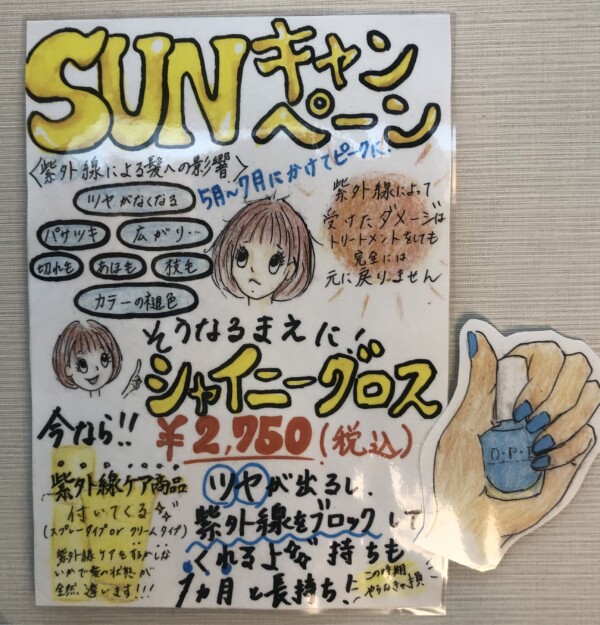 SUNキャンペーン
〈紫外線による髪への影響〉
5月〜7月にかけてピークに!
ツヤがなくなる
パサツキ
広がり…
切れも
あほも
枝毛
カラーの褪色
紫外線によって
受けたダメージは
トリートメントをしても
完全には
元に戻りません
そうなるまえに!
シャイニーグロス
今なら!!
¥2,750(税込)
紫外線ケア商品
付いてくる
(スプレータイプor クリームタイプ)
紫外線ケアをするかしな
いかで髪の状態が
全然、違います!!!
ツヤが出るし、
紫外線をブロックして
くれるよ 持ちも
1ヵ月と長持ち!
この時期
やらなきゃ損
O・P・I